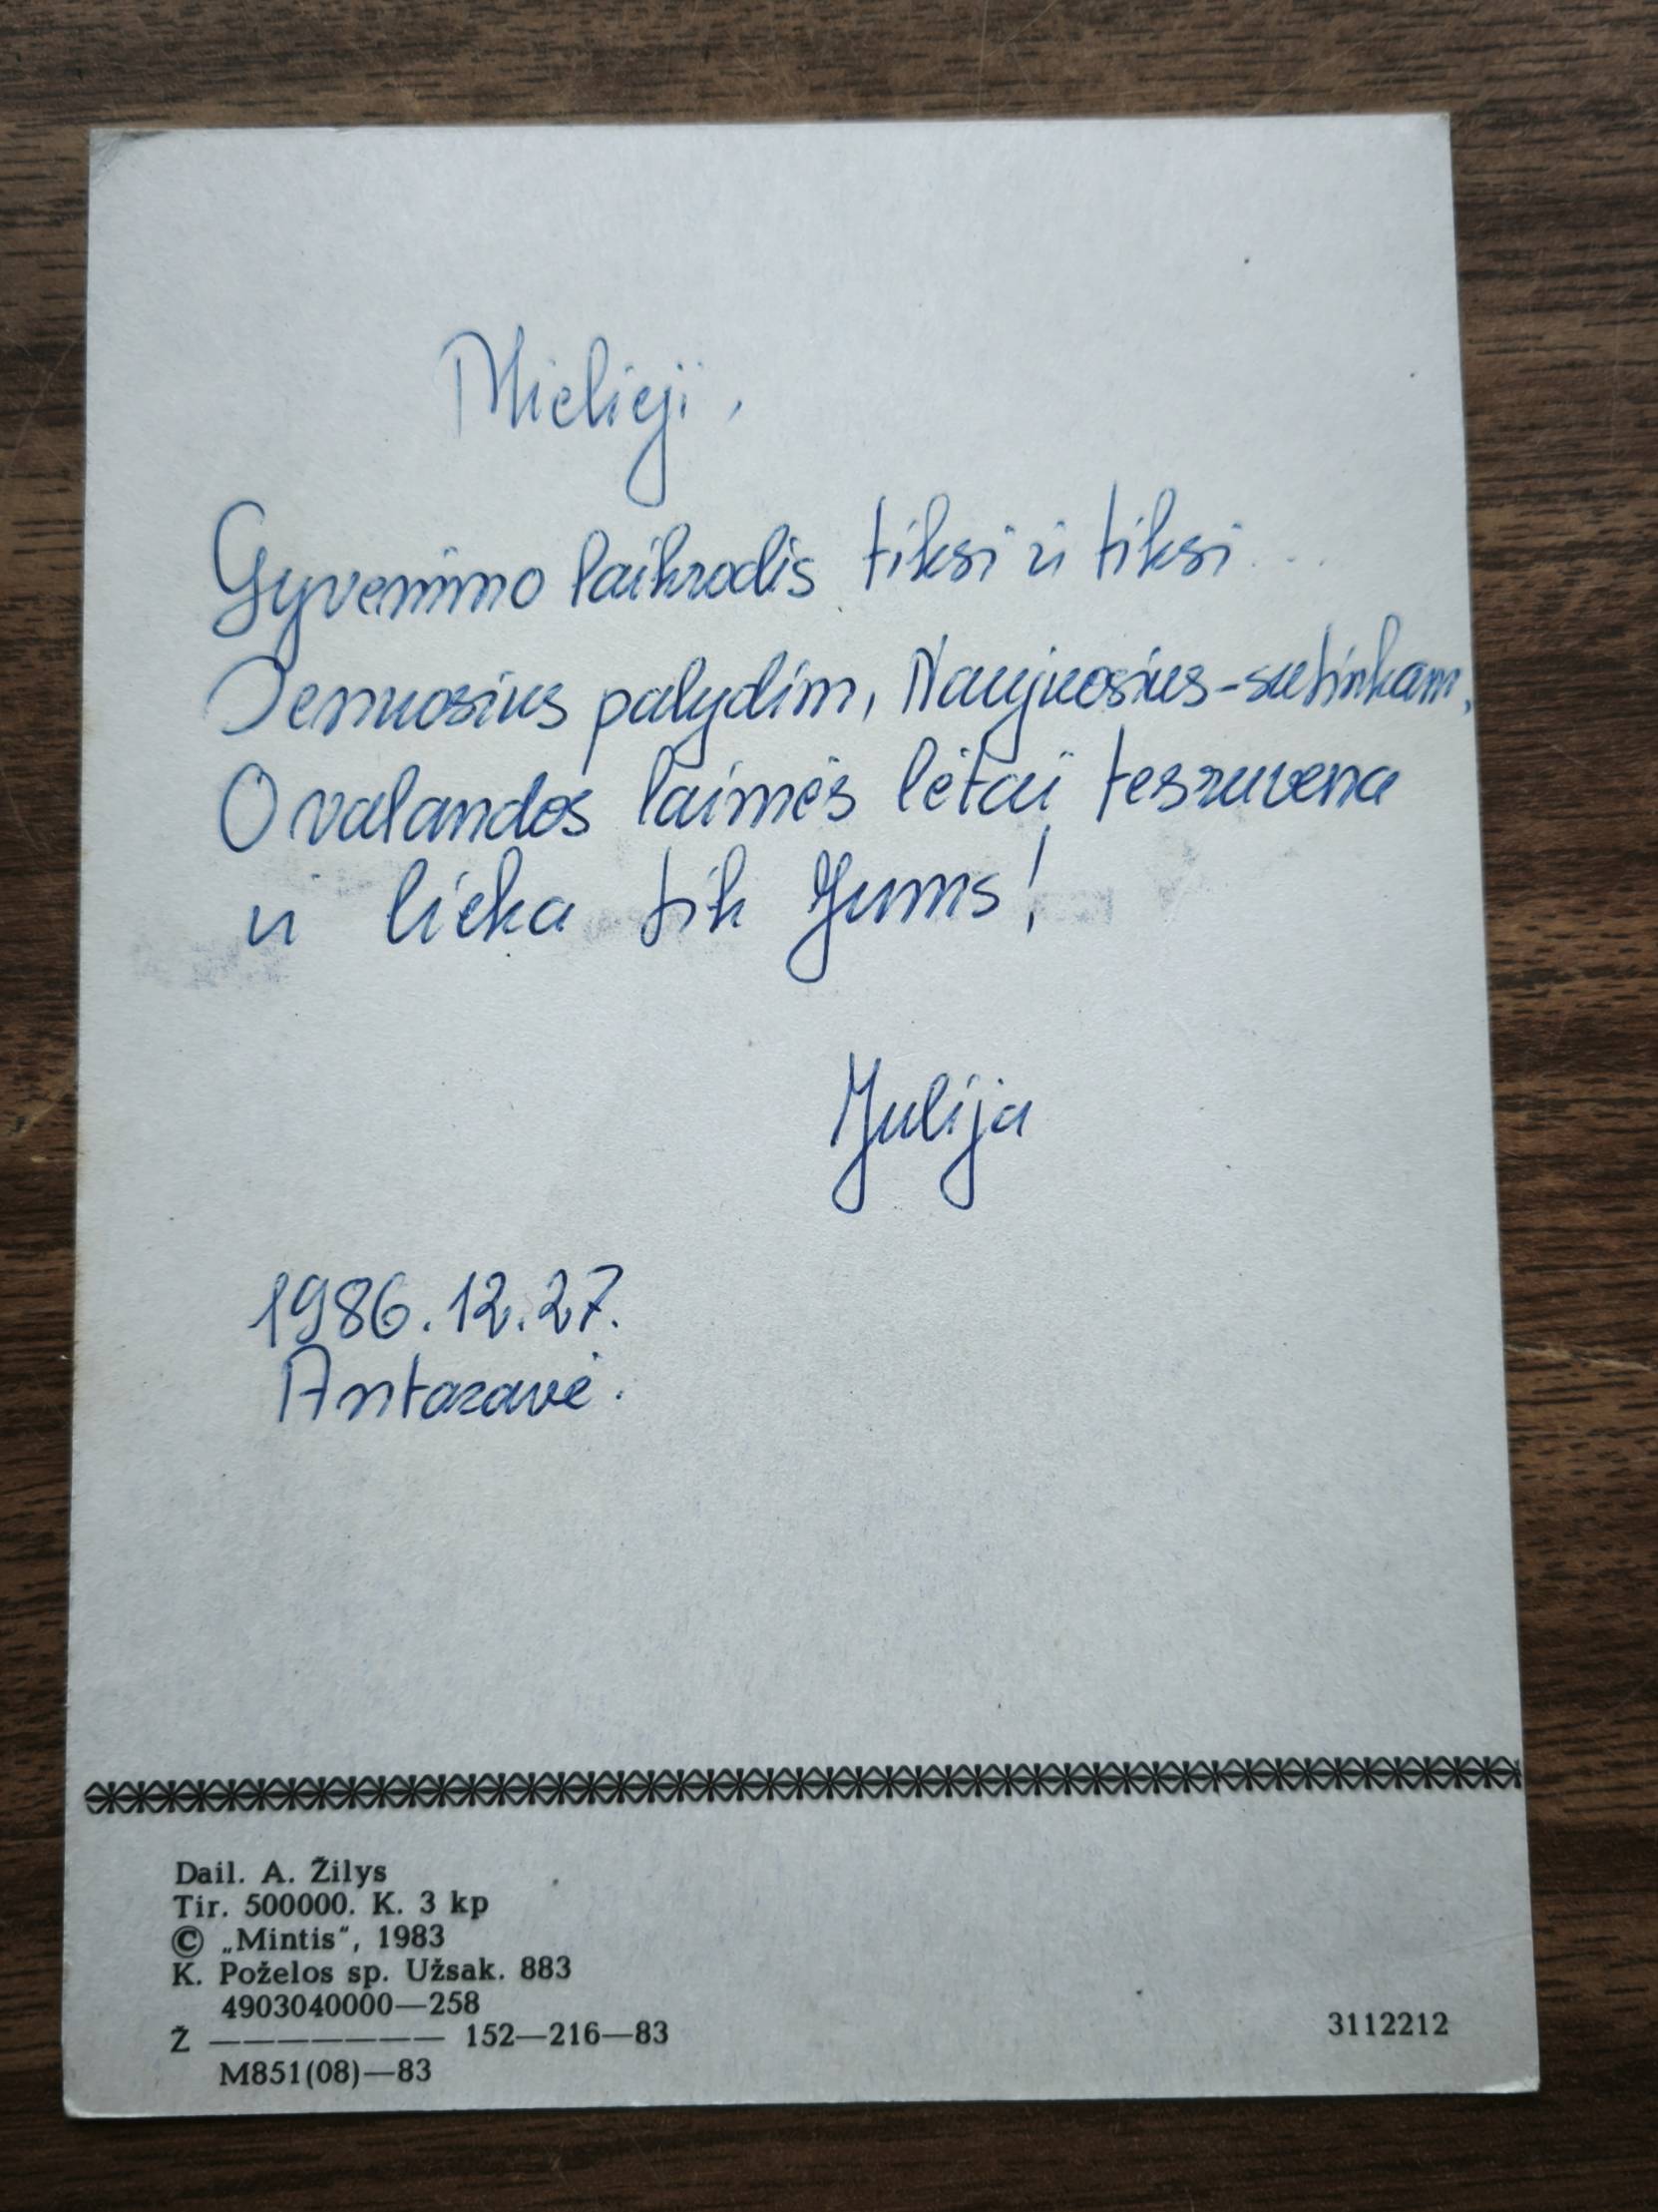 Mielieji,
Gyvenimo laikrodis tiksi ir tiksi...
Senuosius palydim, Naujuosius-sutinkam,
O valandos laimės lėtai tesruvena
ir lieka tik Jums!
Julija
1986.12.27.
Antazavė.
Dail. A. Žilys
Tir. 500000. K. 3 kp
© „Mintis“, 1983
K. Poželos sp. Užsak. 883
4903040000—258
Ž ——————— 152—216—83
M851(08)—83
3112212